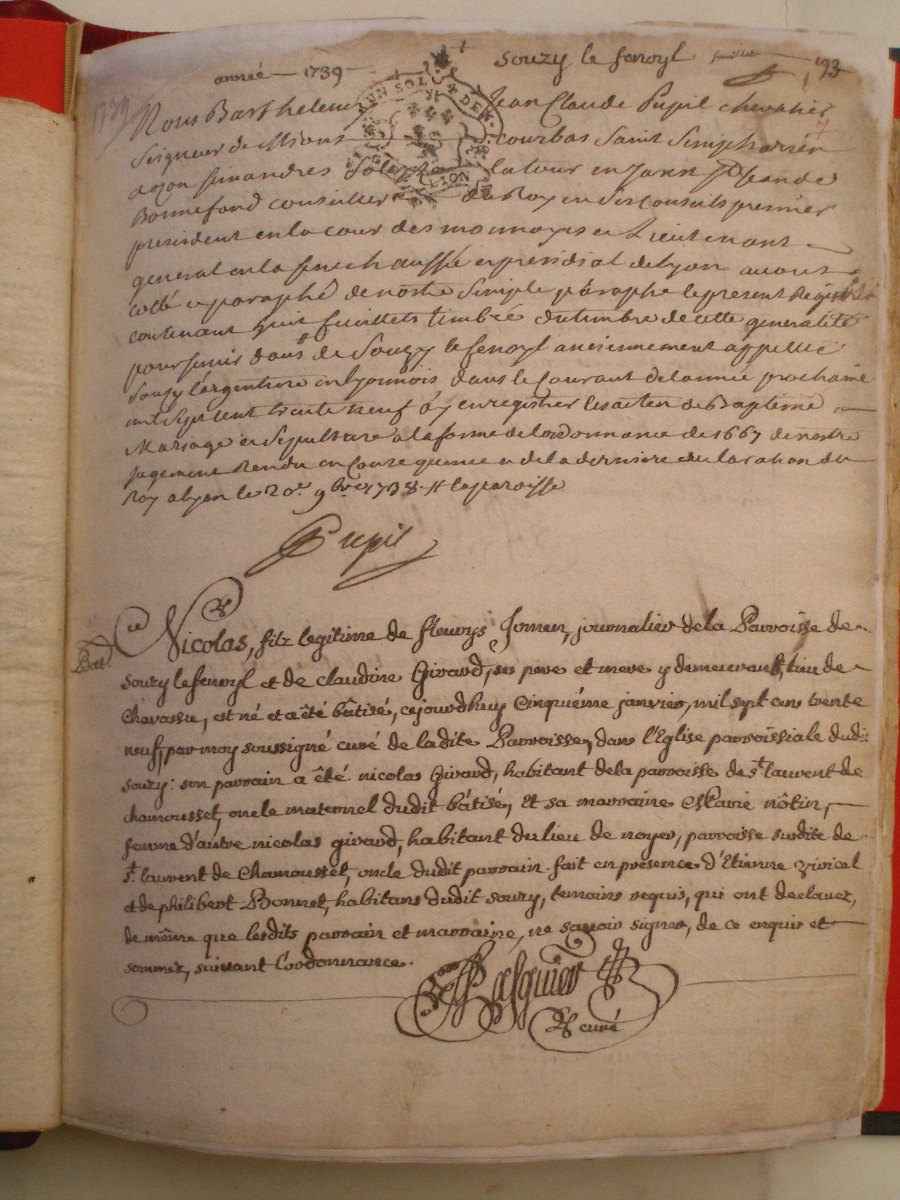 année 1739 souzy le fenoyl feuillet 193
1739
Nous Barthelemy Jean Claude Pupil chevalier
Seigneur de Mions courbas Saint Simphorien
dozon Senandres latour en Jarest
Bonnefond conseiller du Roy en ses Conseils premier
president en la cour des monnoyes et Lieutenant
general en la senechaussée et presidial de lyon avons
cotté et paraphé de nostre simple paraphe le present Registre
contenant huit feuillets timbré du timbre de cette generalité
pour servir dans # de Souzy lefenoyl anciennement appellée
Souzy largentiere en lyonnois dans le Courant de lannée prochaine
mil sept cent trente neuf a y enregistrer les actes de Baptême
Mariage et sepulture a la forme de lordonnance de 1667 de nostre
Jugement Rendu en Consequence et de la derniere declaration du
Roy a lyon le 20e 9bre 1738 # la paroisse
Pupil
Bat
Nicolas, filz legitime de fleurys journalier de la Parroisse de
souzy lefenoyl et de claudine Girard, ses pere et mere y demeurants, lieu de
Chavassu, est né et a été bâtisé, cejourdhuy Cinquiéme janvier, mil sept cens trente
neuf, par moy soussigné curé de la dite Parroisse, dans l'Eglise parroissiale dudit
souzy: son parrain a été nicolas Girard, habitant de la parroisse de st laurent de
chamousset, oncle maternel dudit bâtisé, Et sa marraine Marie nôtin,
femme d'autre nicolas girard, habitant du lieu de noyer, parroisse susdite de
st laurent de Chamousset, oncle dudit parrain. fait en présence d'Etienne viricel
et de philibert Bonnet, habitans dudit souzy, temoins requis, qui ont declarez,
de même que lesdits parrain et marraine, ne sçavoir signer, de ce enquis et
sommez, suivant l'ordonnance.
Pasquier
curé